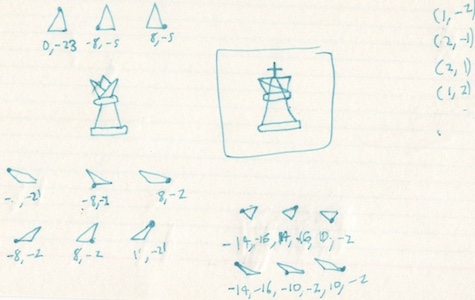 0,-23 -8,-5 8,-5
(1,-2)
(2,-1)
(2,1)
(1,2)
-8,-2 8,-2
-8,-2 8,-2
-14,-16, 10,-2
-14,-16, -10,-2, 10,-2